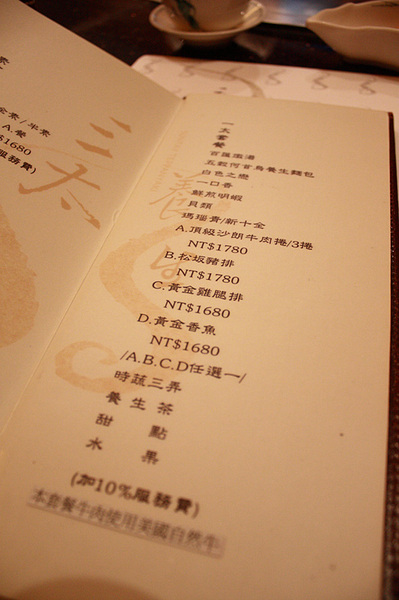 A.餐
$1680
服務費)
三太
養
一太套餐
百匯燉湯
五穀何首烏養生麵包
白色之戀
一口香
鮮煎明蝦
貝類
瑪瑙責/新十金
A.頂級沙朗牛肉捲/3捲
NT$1780
B.松坂豬排
NT$1780
C.黃金雞腿排
NT$1680
D.黃金香魚
NT$1680
/A.B.C.D任選一/
時蔬三弄
養生茶
甜點
水果
(加10%服務費)
本套餐牛肉使用美國自然牛